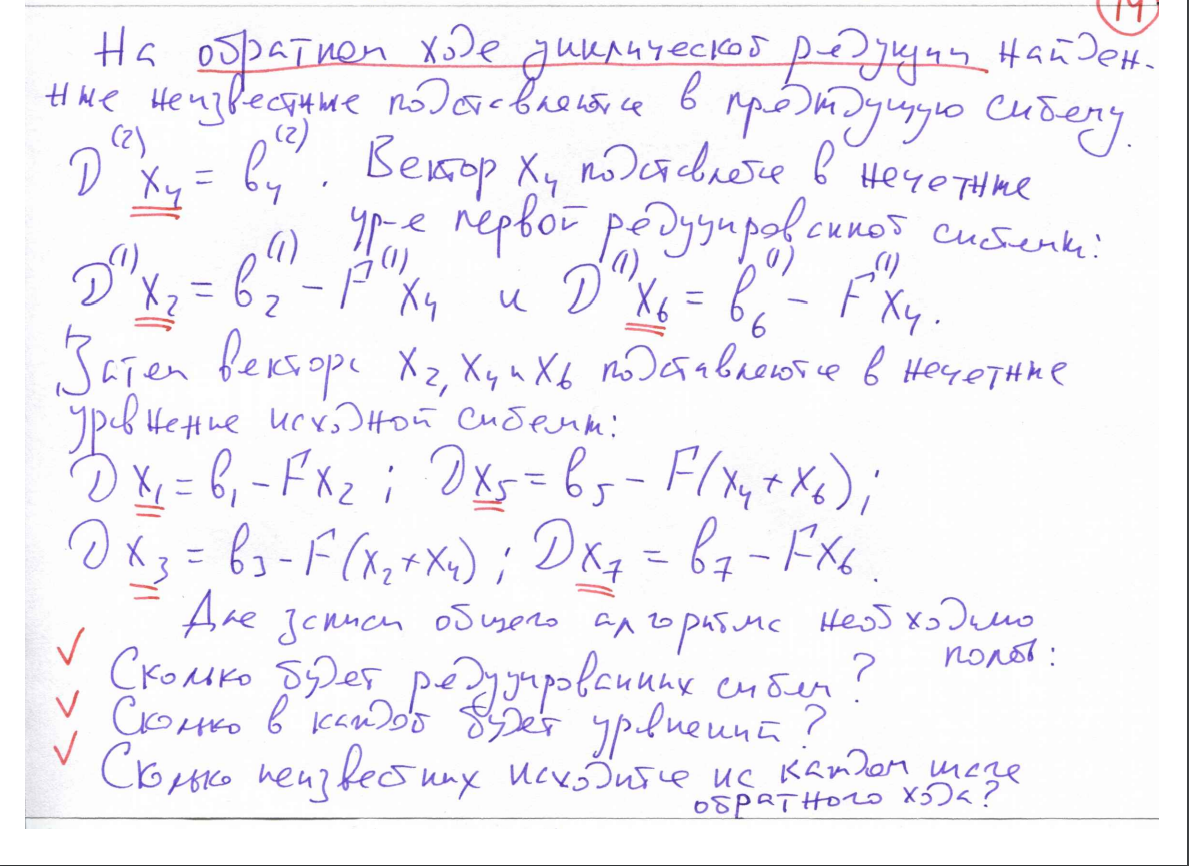 14
На обратном ходе циклической редукции найден-
ные неизвестные подставляются в предыдущую систему.
D⁽²⁾x₄ = b₄⁽²⁾. Вектор x₄ подставляется в нечетные
ур-я первой редуцированной системы:
D⁽¹⁾x₂ = b₂⁽¹⁾ - F⁽¹⁾x₄ и D⁽¹⁾x₆ = b₆⁽¹⁾ - F⁽¹⁾x₄.
Затем вектора x₂, x₄ и x₆ подставляются в нечетные
уравнения исходной системы:
Dx₁ = b₁ - Fx₂ ; Dx₅ = b₅ - F(x₄ + x₆) ;
Dx₃ = b₃ - F(x₂ + x₄) ; Dx₇ = b₇ - Fx₆.
Для записи общего алгоритма необходимо
понять:
✓ Сколько будет редуцированных систем?
✓ Сколько в каждой будет уравнений?
✓ Сколько неизвестных находится на каждом шаге
обратного хода?